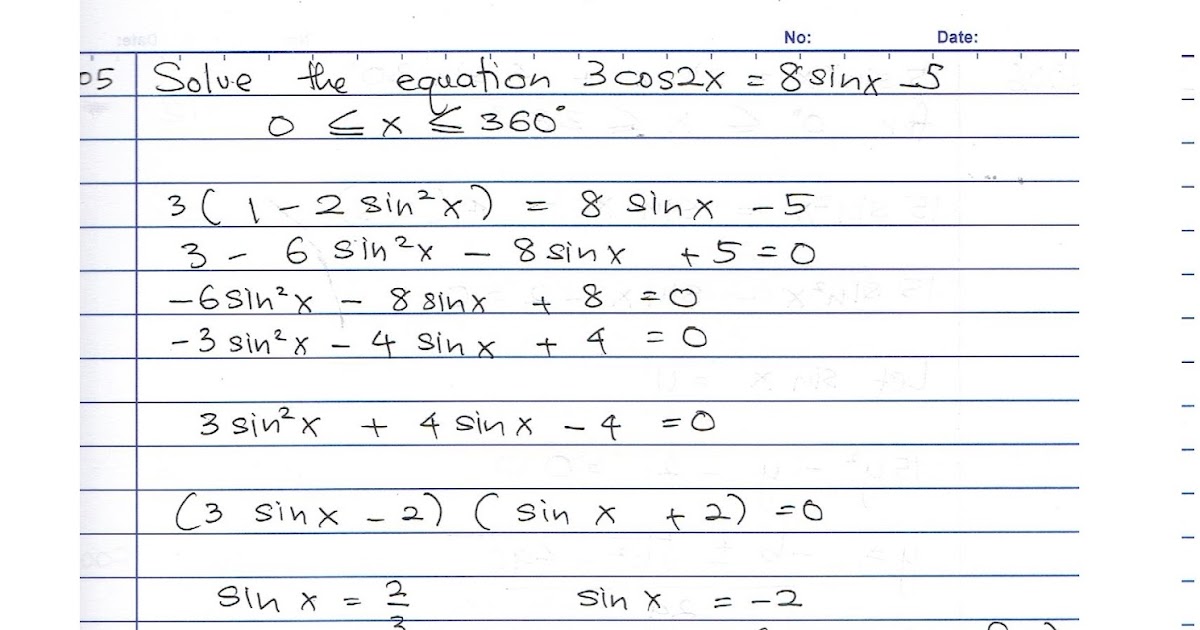 No: Date:
05 Solve the equation 3cos2x = 8sinx - 5
0 ≤ x ≤ 360°
3(1 - 2 sin²x) = 8 sinx - 5
3 - 6 sin²x - 8 sinx + 5 = 0
-6sin²x - 8 sinx + 8 = 0
-3 sin²x - 4 sinx + 4 = 0
3 sin²x + 4 sinx - 4 = 0
(3 sinx - 2) (sin x + 2) = 0
sin x = 2/3 sin x = -2